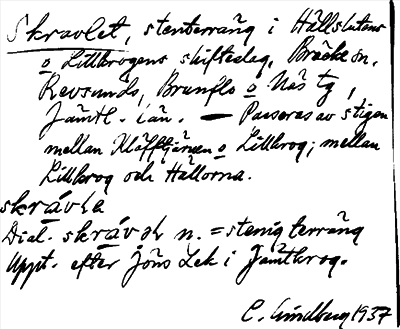 Skravlet, stenterräng i Hällslutens
o Lillkrogens skifteslag, Bräcke sn,
Revsunds, Brunflo o Näs tg,
Jämtl. län. — Passeras av stigen
mellan Klöfftjärnen o Lillkrog; mellan
Lillkrog och Hällorna.
skrávla
Dial. skráv n. = stenig terräng
Uppt. efter Jöns Lek i Jämtkrog.
C. Lindberg 1937